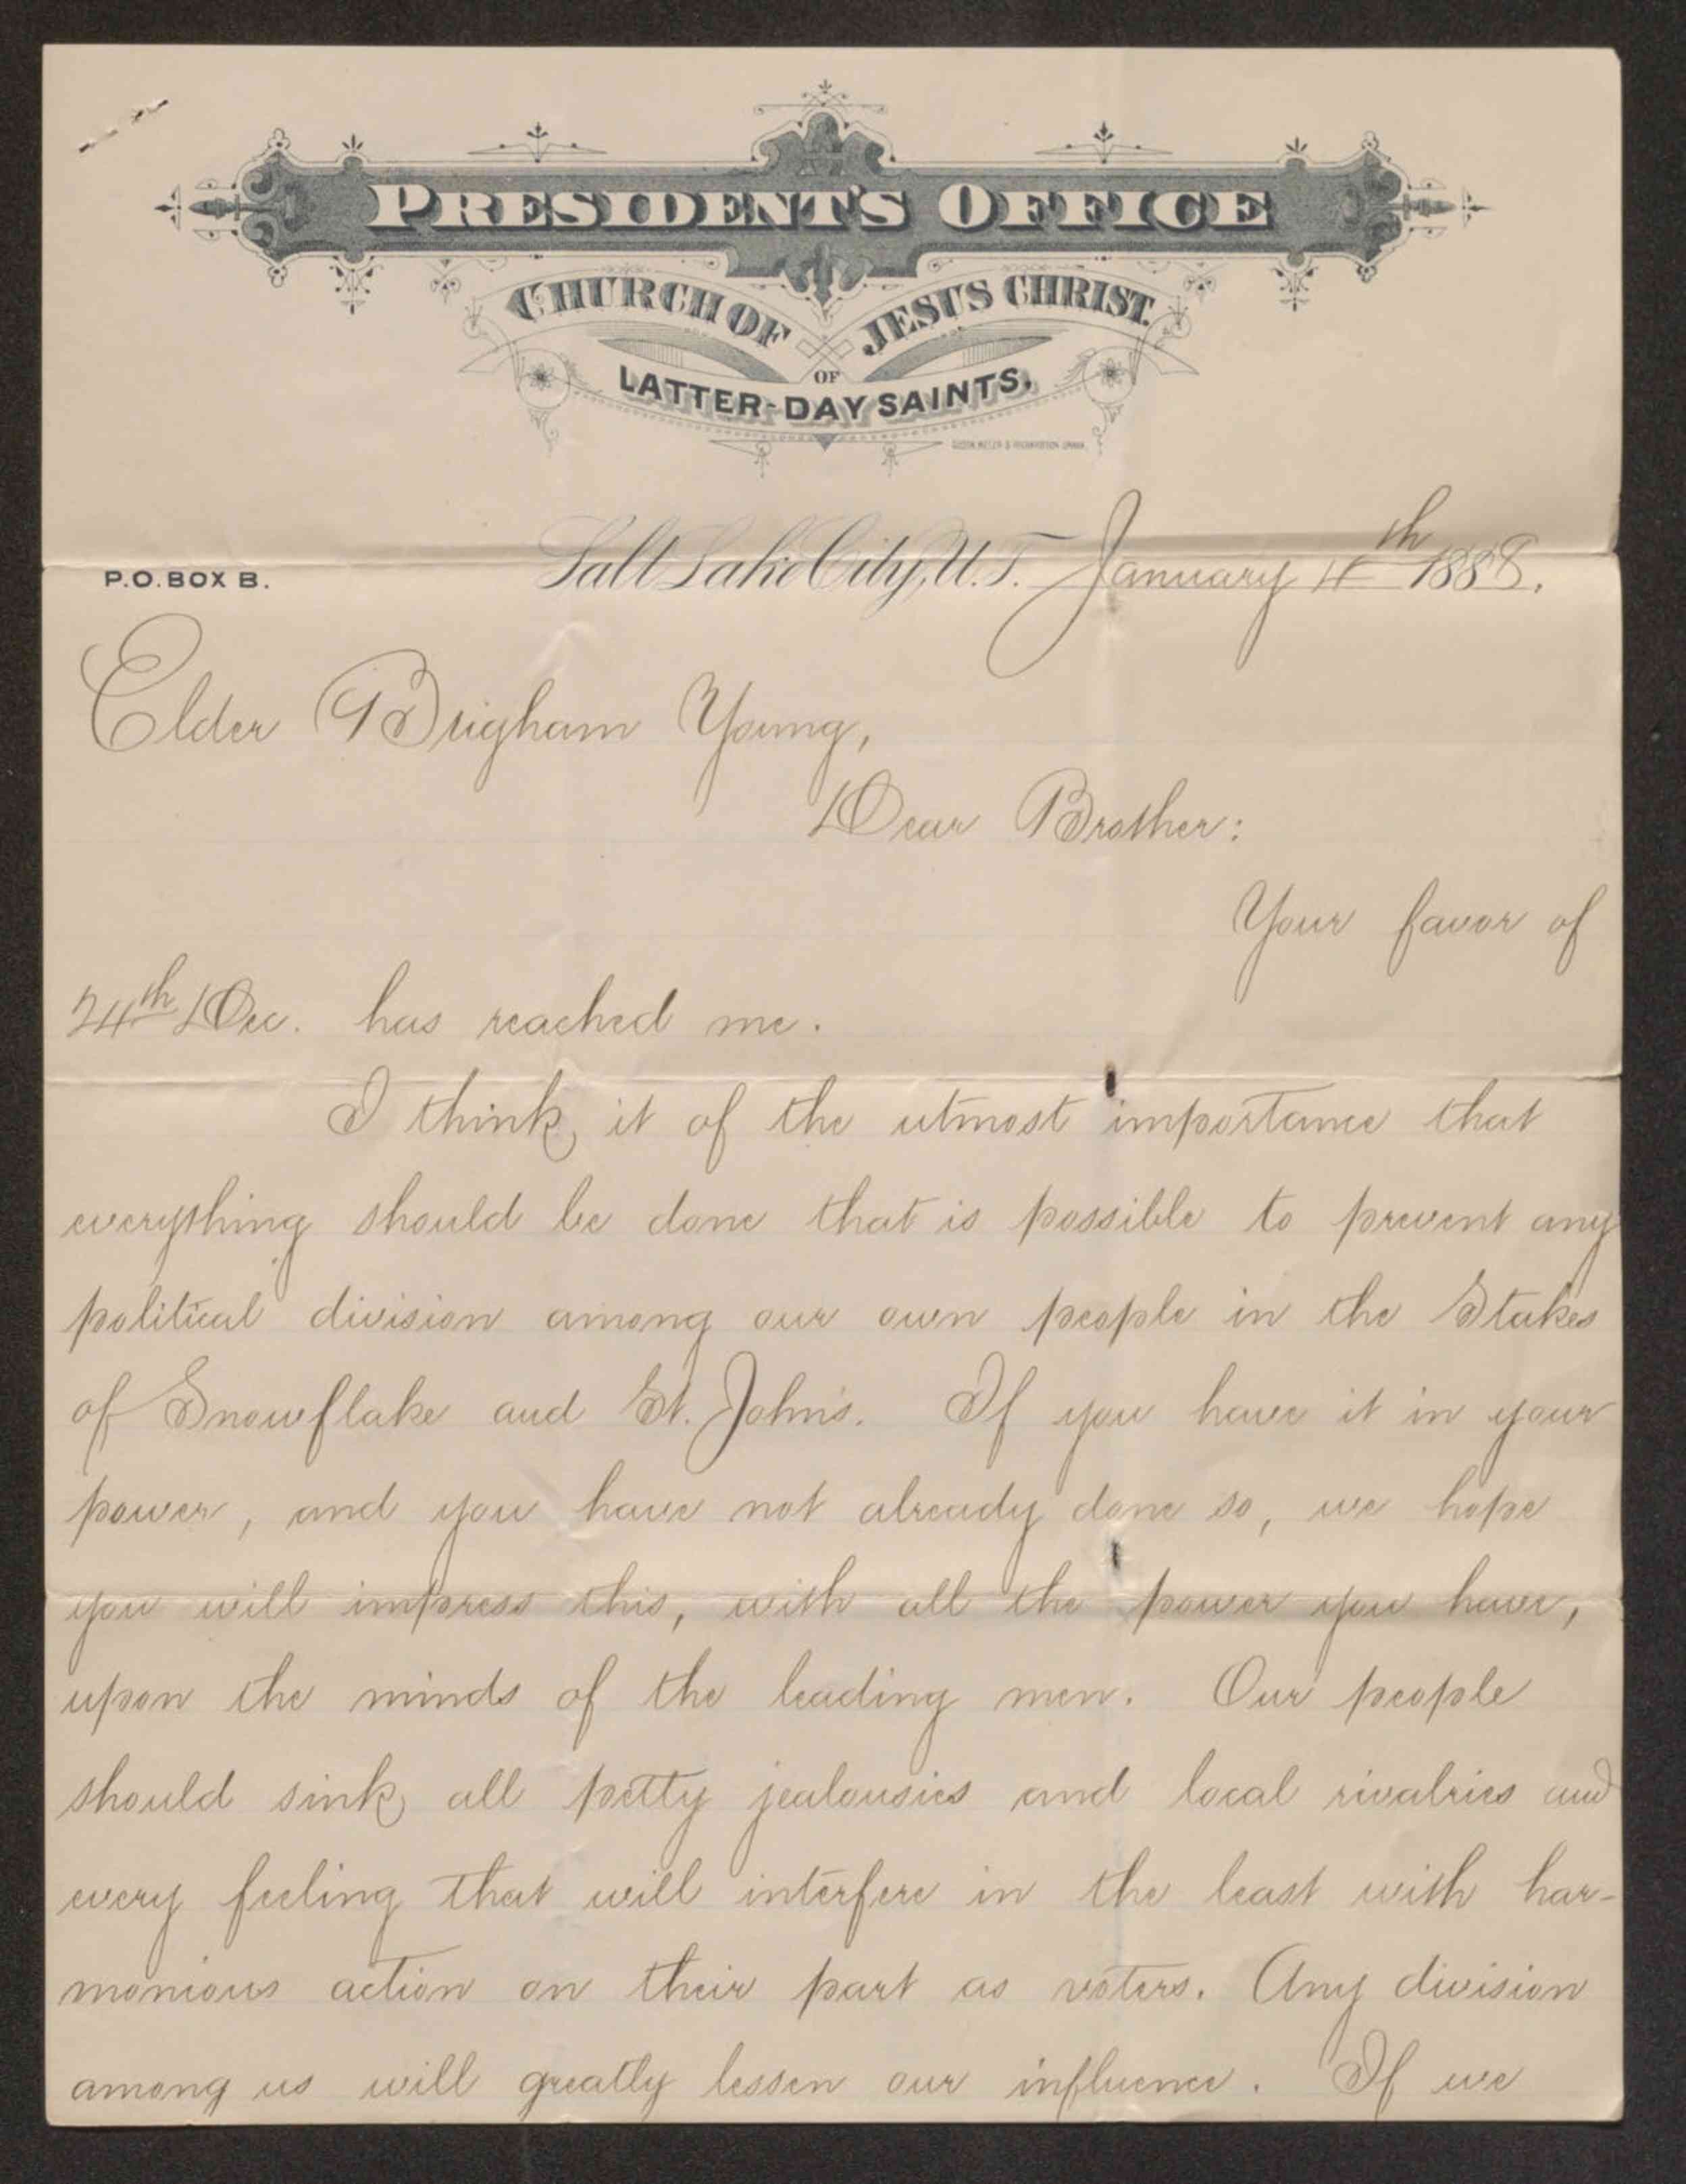 PRESIDENT'S OFFICE
CHURCH OF JESUS CHRIST
OF
LATTER-DAY SAINTS.
P.O. BOX B.
Salt Lake City, U.T. January th 1888.
Elder Brigham Young,
Dear Brother:
Your favor of
24th Dec. has reached me.
I think it of the utmost importance that
everything should be done that is possible to prevent any
political division among our own people in the Stakes
of Snowflake and St. John's. If you have it in your
power, and you have not already done so, we hope
you will impress this, with all the power you have,
upon the minds of the leading men. Our people
should sink all petty jealousies and local rivalries and
every feeling that will interfere in the least with har-
monious action on their part as voters. Any division
among us will greatly lessen our influence. If we